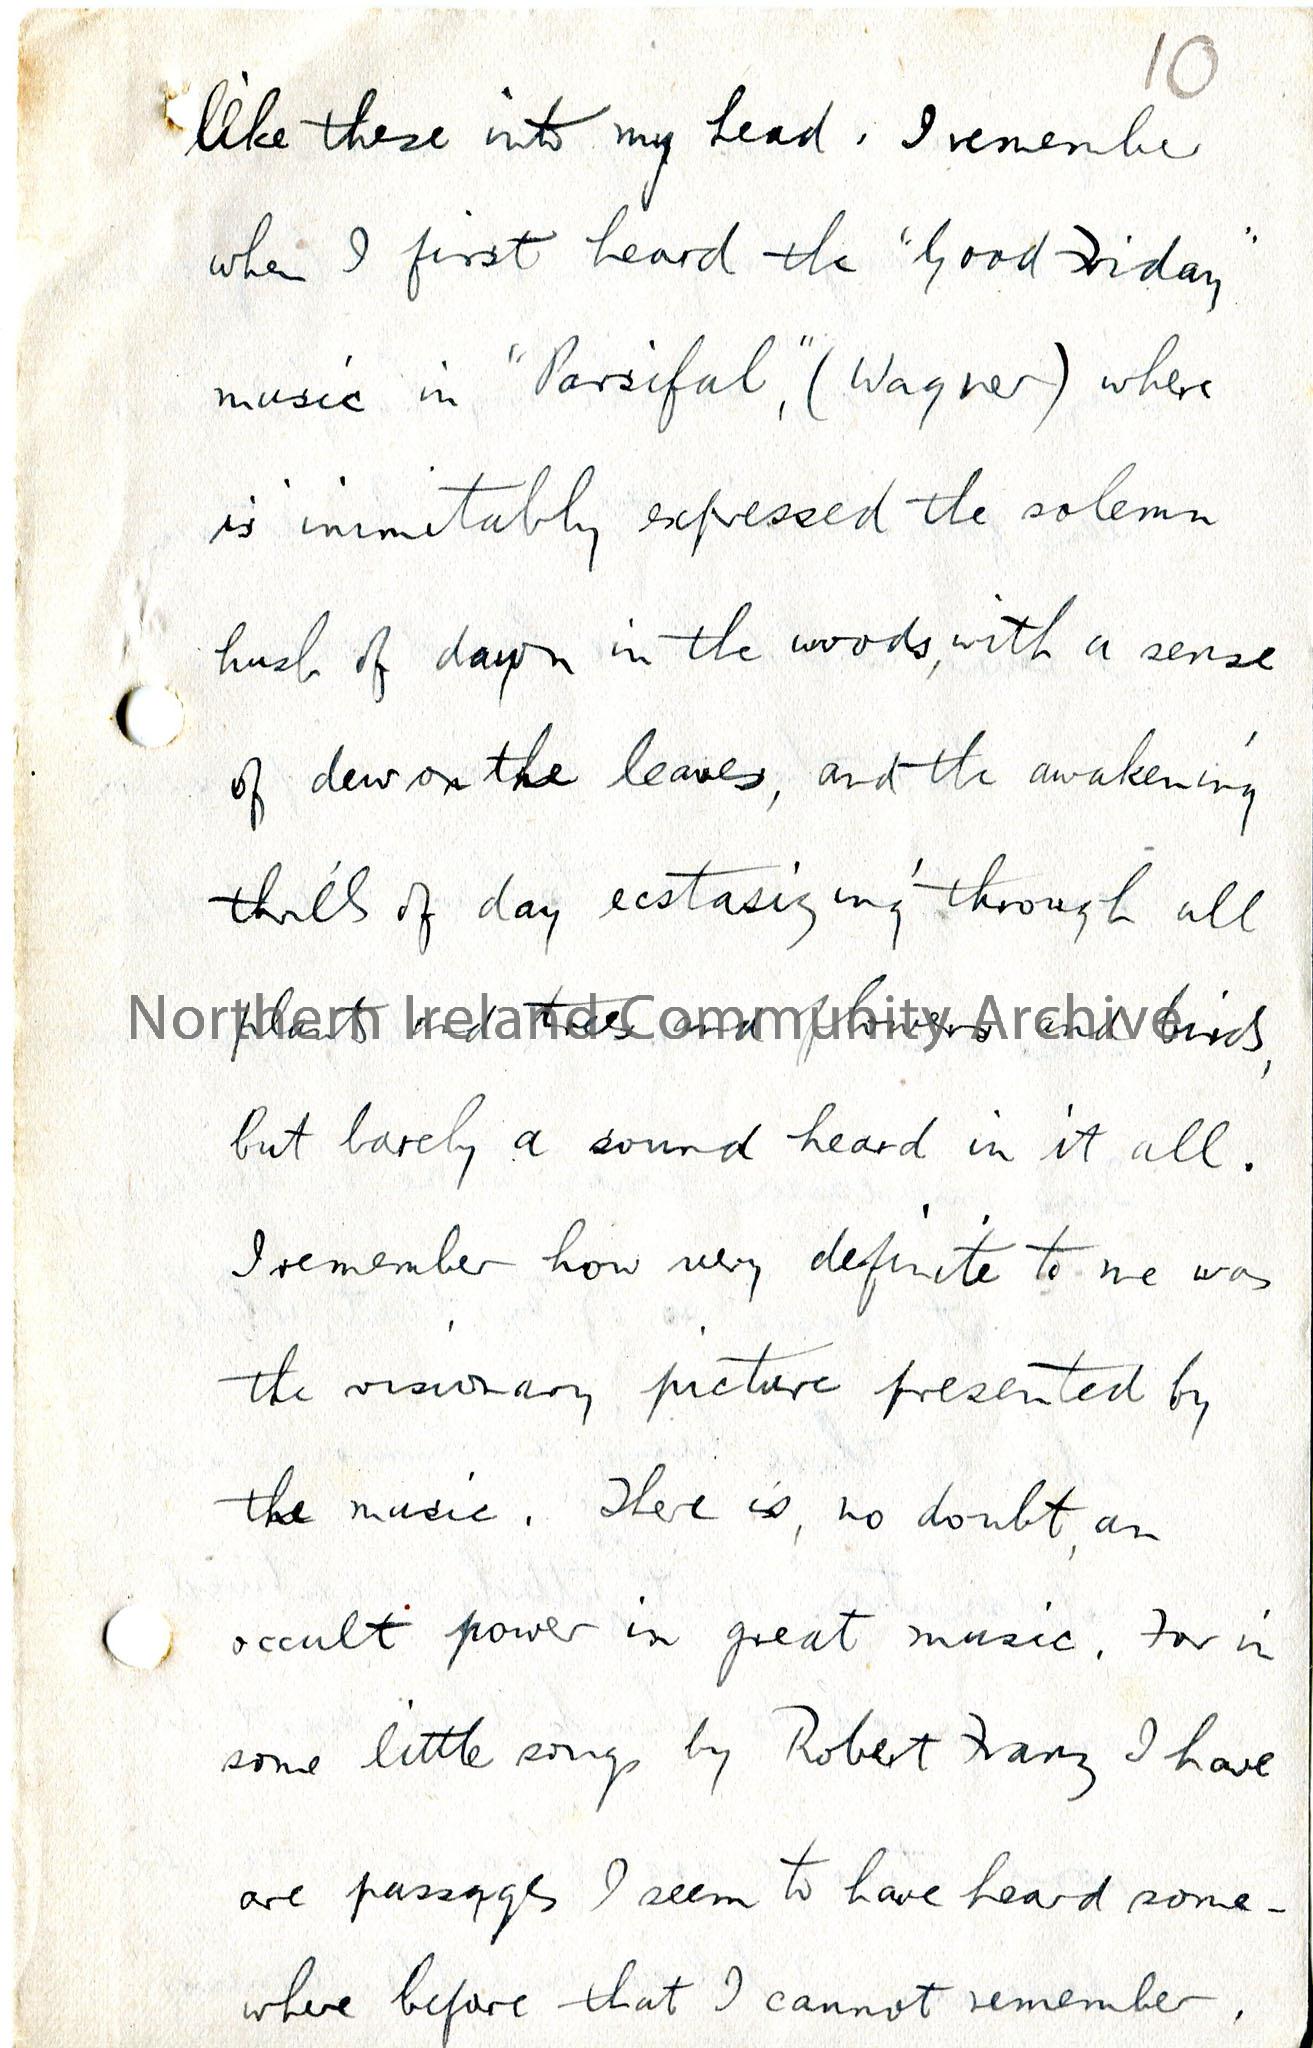 10
like these into my head. I remember
when I first heard the "Good Friday"
music in "Parsifal", (Wagner) where
is inimitably expressed the solemn
hush of dawn in the woods, with a sense
of dew on the leaves, and the awakening
thrill of day ecstasizing through all
plants and trees and flowers and birds,
Northern Ireland Community Archive
but barely a sound heard in it all.
I remember how very definite to me was
the visionary picture presented by
the music. There is, no doubt, an
occult power in great music. For in
some little songs by Robert Franz I have
are passages I seem to have heard some-
where before that I cannot remember.